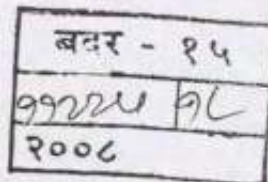 बदर - १५
११२२५ १८
२००८